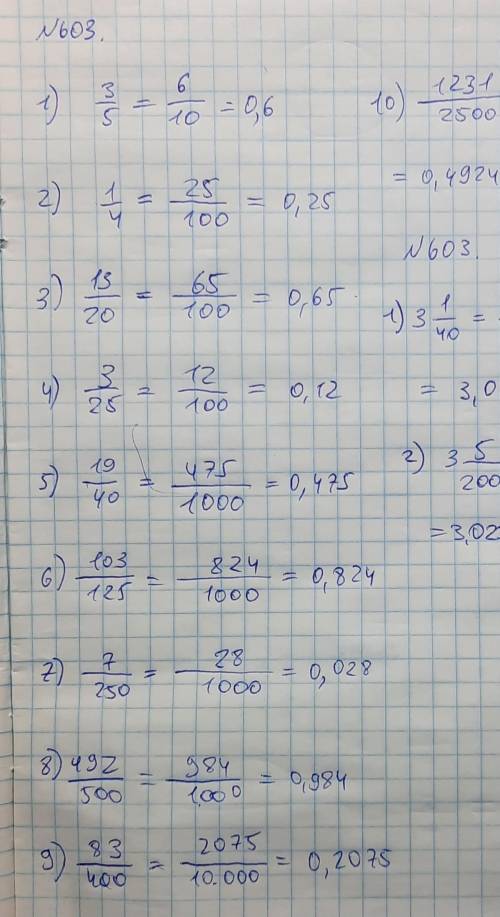 №603.
1) 3/5 = 6/10 = 0,6
2) 1/4 = 25/100 = 0,25
3) 13/20 = 65/100 = 0,65
4) 3/25 = 12/100 = 0,12
5) 19/40 = 475/1000 = 0,475
6) 103/125 = 824/1000 = 0,824
7) 7/250 = 28/1000 = 0,028
8) 492/500 = 984/1000 = 0,984
9) 83/400 = 2075/10.000 = 0,2075
10) 1231/2500
= 0,4924
№603.
1) 3 1/40 =
= 3,0
2) 3 5/200
= 3,02